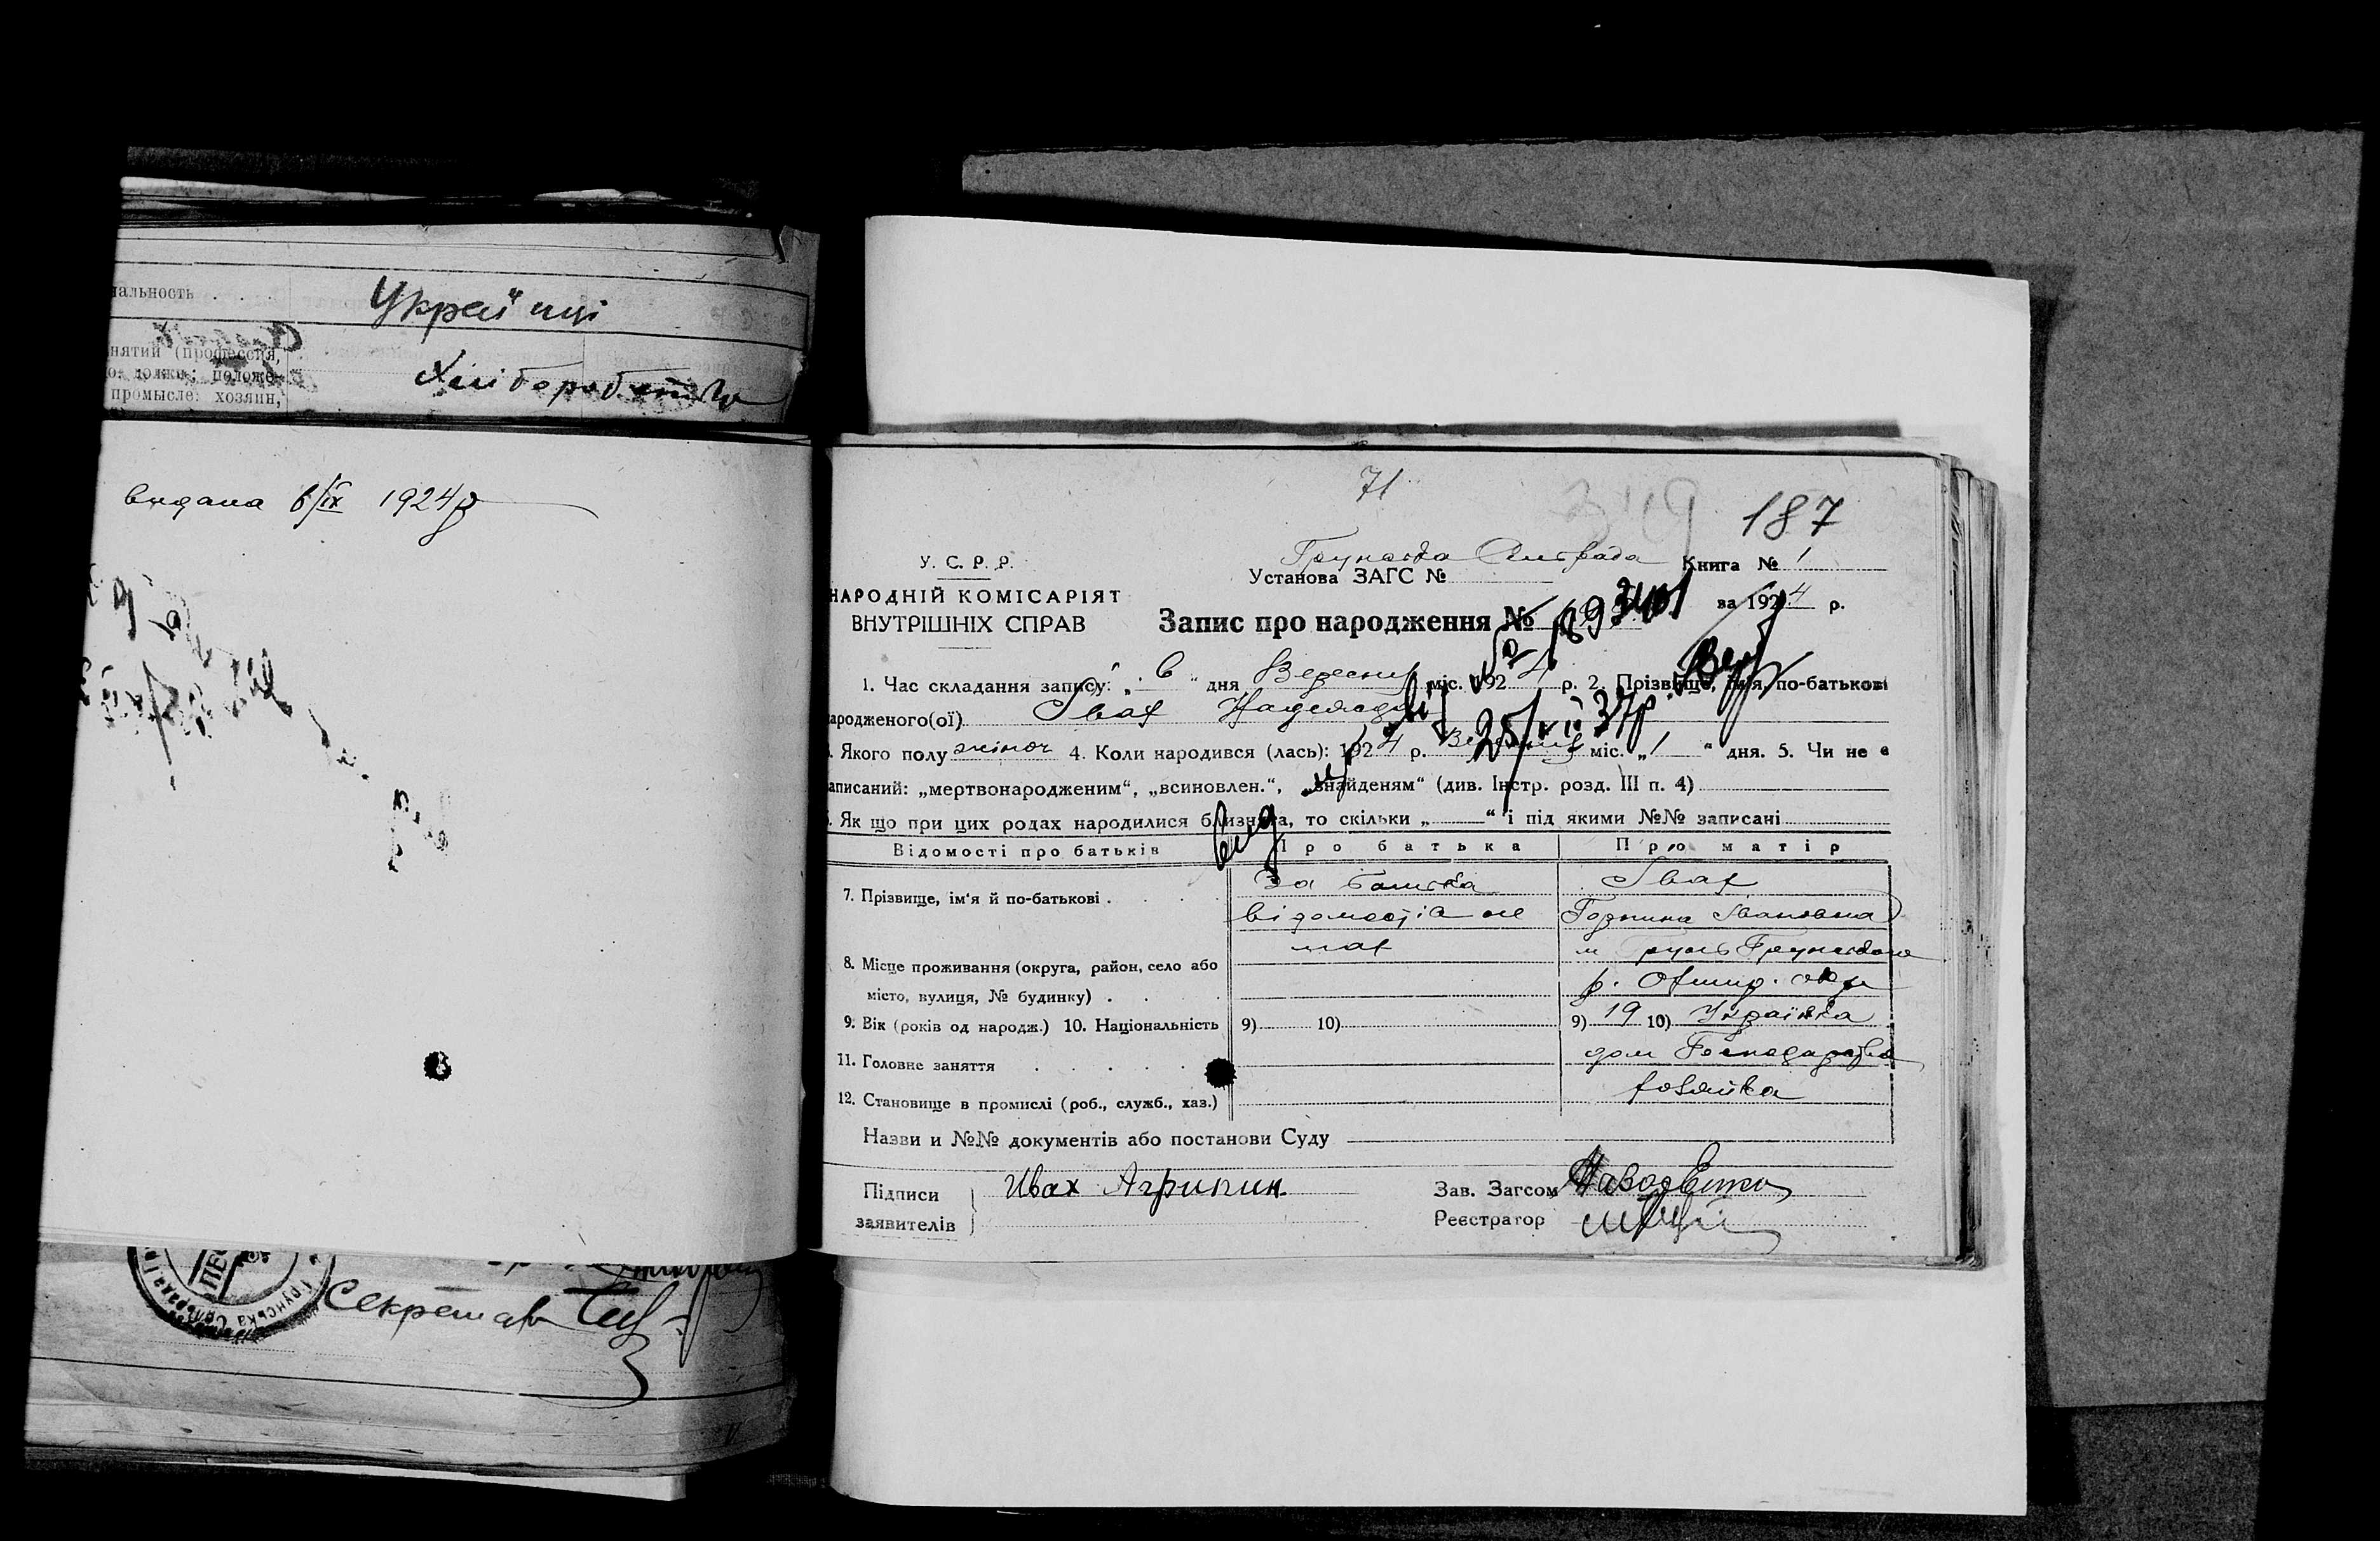 нальность . . .
Украйнці
нятий (профессия,
должн; положе-
промысле: хозяин,
Хліборобство
видана 6/IX 1924р
Секретар
71
349
187
У. С. Р. Р.
НАРОДНІЙ КОМІСАРІЯТ
ВНУТРІШНІХ СПРАВ
Грунська Сільрада
Установа ЗАГС №
Книга № 1
за 1924 р.
Запис про народження №
1. Час складання запису: „ 6 “ дня Вересня міс. 1924 р. 2. Прізвище, ім'я, по-батькові
ародженого(ої) Івах Надежда
25/ 37р.
. Якого полу жіноч 4. Коли народився (лась): 1924 р. Вересня міс. „ 1 “ дня. 5. Чи не є
аписаний: „мертвонародженим“, „всиновлен.“, „знайденям“ (див. Інстр. розд. III п. 4)
. Як що при цих родах народилися близнята, то скільки „ “ і під якими №№ записані
Відомості про батьків Про батька Про матір
7. Прізвище, ім'я й по-батькові .
За батька
відомостів не
має
Івах
Горпина Івановна
8. Місце проживання (округа, район, село або
місто, вулиця, № будинку) .
м Грунь Грунського
р. Охтир. окр
9. Вік (років од народж.) 10. Національність 9) 10) 9) 19 10) Українка
11. Головне заняття дом Господарства
12. Становище в промислі (роб., служб., хаз.) хозяйка
Назви и №№ документів або постанови Суду
Підписи
заявителів
Ивах Агрипин
Зав. Загсом
Реєстратор